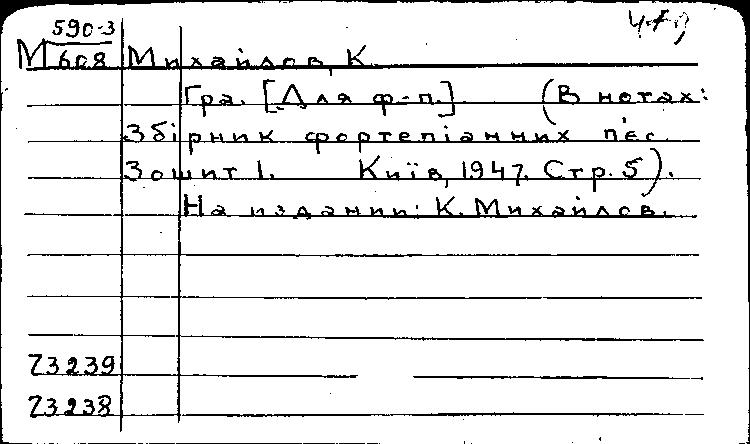 590-3
М 608 Михайлов, К.
Гра. [Для ф-п.]. (В нотах:
Збірник фортепіанних п'єс.
Зошит 1. Київ, 1947. Стр. 5).
На издании: К. Михайлов.
73239
73238